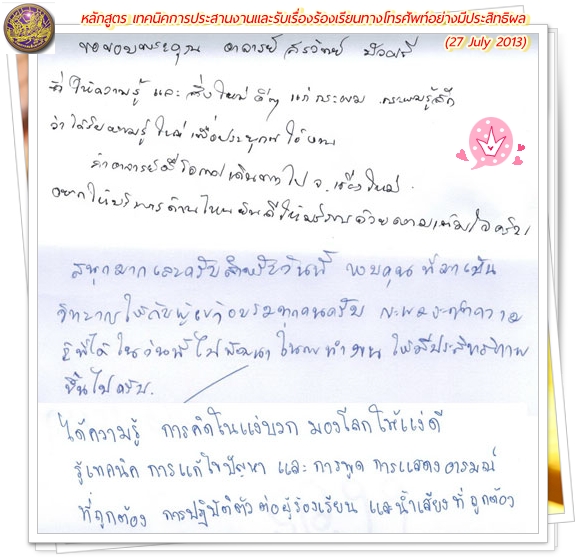 หลักสูตร เทคนิคการประสานงานและรับเรื่องร้องเรียนทางโทรศัพท์อย่างมีประสิทธิผล
(27 July 2013)
ขอขอบพระคุณ อาจารย์ สรวิทย์
ที่ให้ความรู้ และ สิ่งใหม่ ดีๆ แก่กระผม กระผมรู้สึก
ว่าได้รับความรู้ ใหม่ เพื่อประยุกต์ ใช้งาน
ถ้าอาจารย์มีโอกาสเดินทางไป จ. เชียงใหม่
อยากให้บริการด้านไหนยินดีให้บริการด้วยความเต็มใจครับ
สนุกมากเลยครับสำหรับวันนี้ ขอบคุณที่มาเป็น
วิทยากรให้กับผู้เข้าอบรมทุกคนครับ กระผมจะนำความ
รู้ที่ได้ในวันนี้ไปพัฒนาในการทำงาน ให้มีประสิทธิภาพ
ขึ้นไปครับ.
ได้ความรู้ การคิดในแง่บวก มองโลกให้แง่ดี
รู้เทคนิค การแก้ไขปัญหา และ การพูด การแสดงอารมณ์
ที่ถูกต้อง การปฏิบัติตัว ต่อผู้ร้องเรียน และน้ำเสียงที่ ถูกต้อง